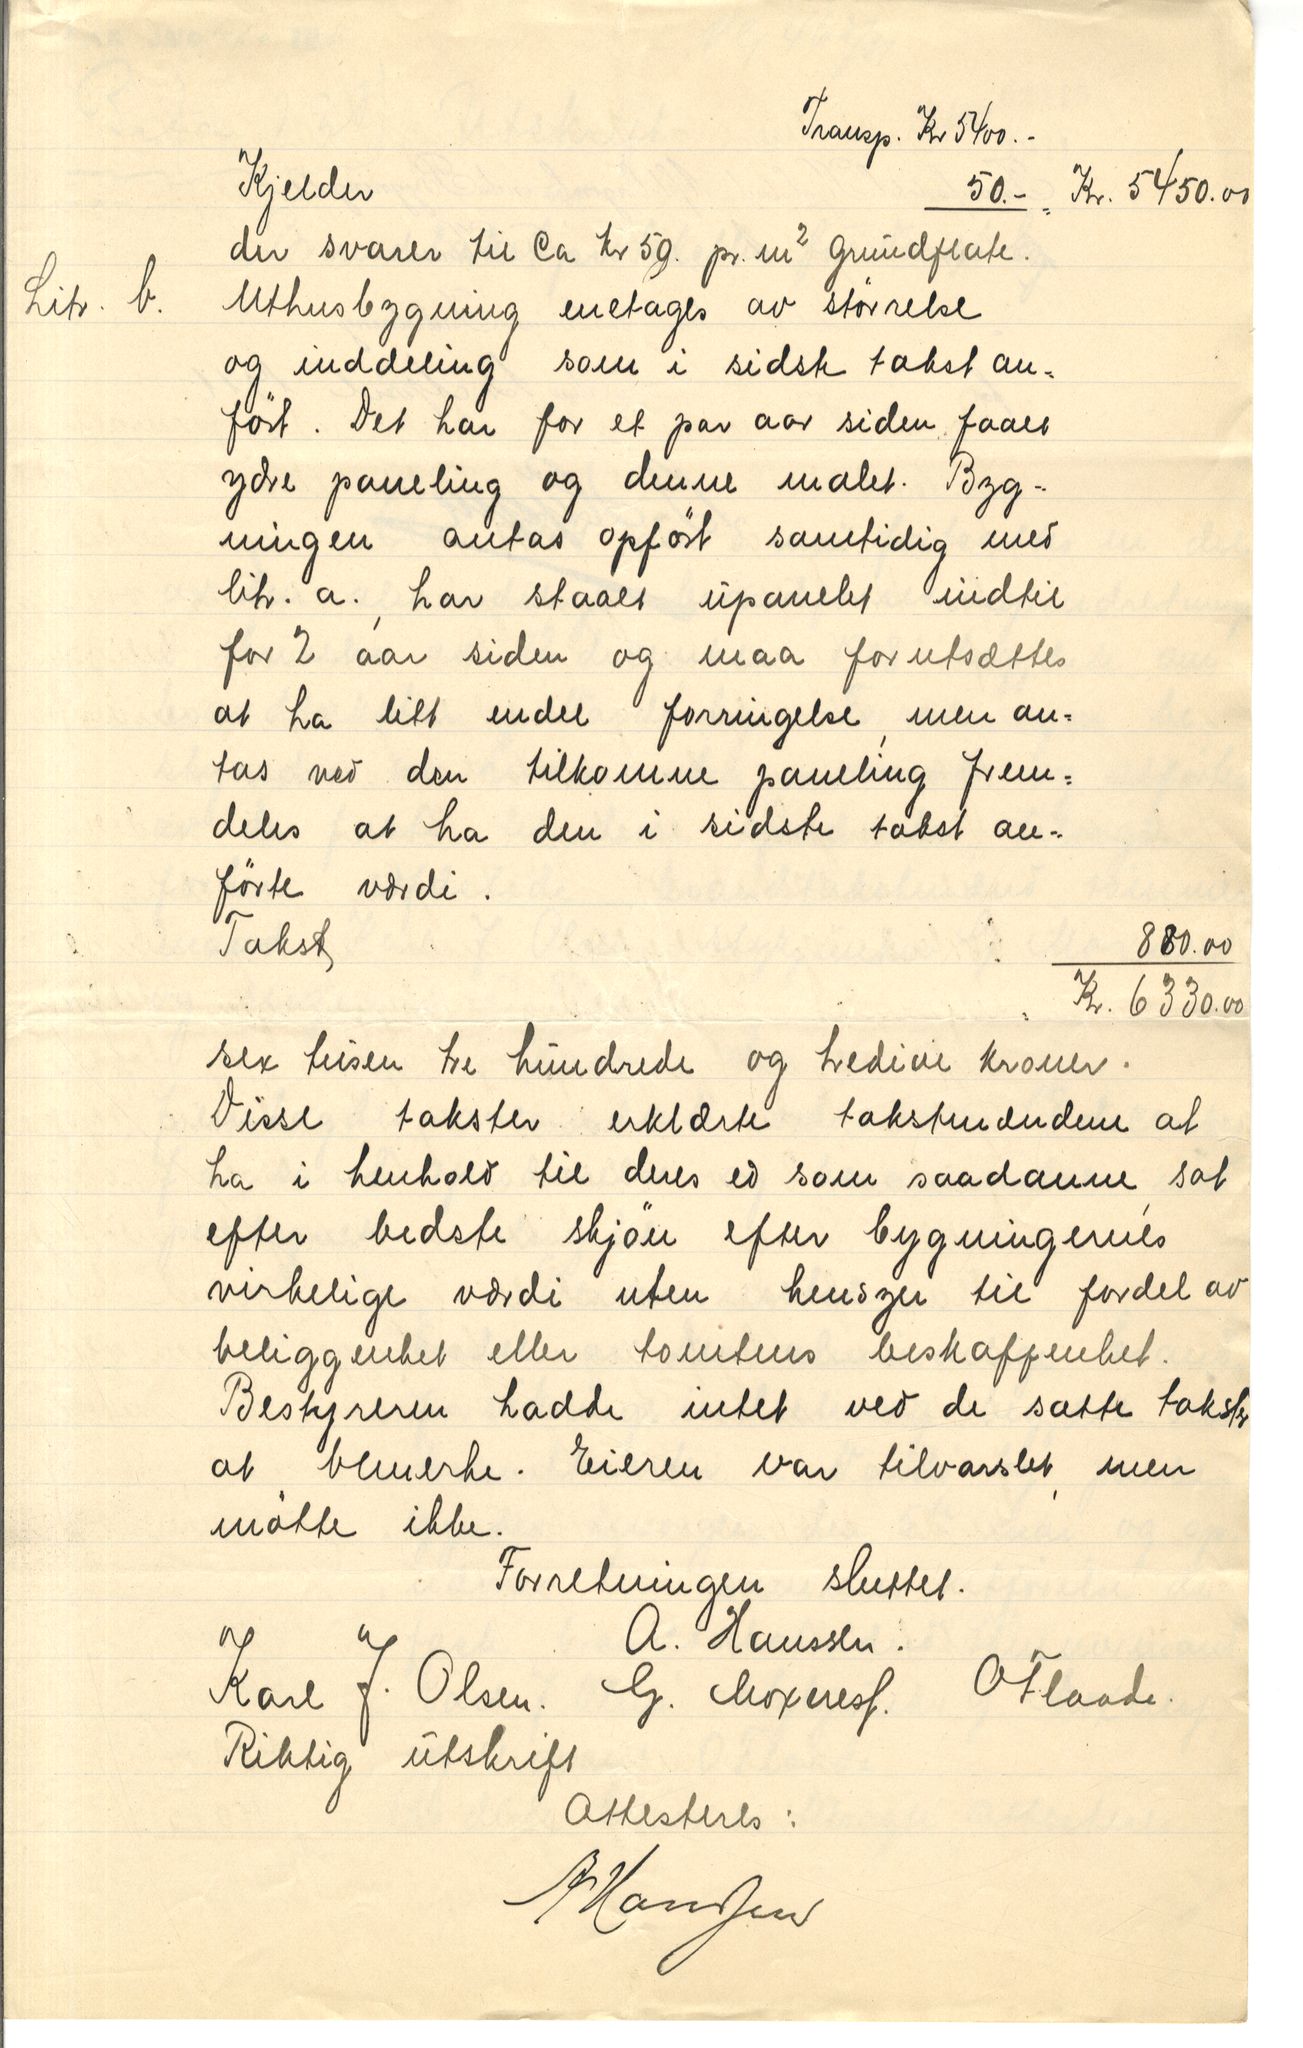 Transp. Kr 5400.-
Kjelder 50.- = Kr. 5450.00
der svarer til Ca kr 59. pr. m² Grundflate.
Litr. b. Uthusbygning enetages av störrelse
og inddeling som i sidste takst an-
fört. Det har for et par aar siden faaet
ydre paneling og denne malet. Byg-
ningen antas opfört samtidig med
litr. a., har staaet upanelet indtil
for 2 aar siden og maa forutsættes
at ha litt endel forringelse, men an-
tas ved den tilkomne paneling frem-
deles at ha den i sidste takst an-
förte værdi.
Takst, 880.00
= Kr. 6330.00
sex tusen tre hundrede og tredive kroner.
Disse takster erklærte takstmændene at
ha i henhold til deres ed som saadanne, sat
efter bedste skjön efter bygningernes
virkelige værdi uten hensyn til fordel av
beliggenhet eller tomtens beskaffenhet.
Bestyreren hadde intet ved de satte takster
at bemerke. Eieren var tilvarslet, men
mötte ikke.
Forretningen sluttet.
A. Hanssen.
Karl J. Olsen. G. O Flaade.
Riktig utskrift
Attesteres:
A Hanssen